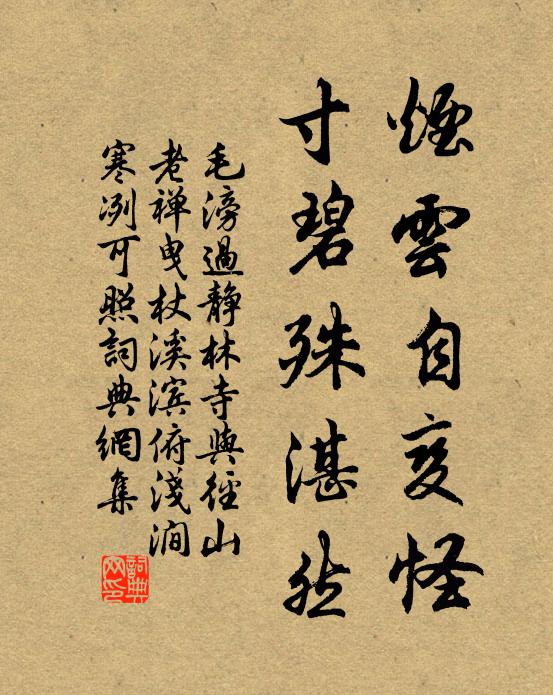 煙雲自変怪
寸碧殊湛然
毛滂過靜林寺與徑山
老禅曳杖溪滨俯淺澗
寒冽可照詞典網集
詞典網印